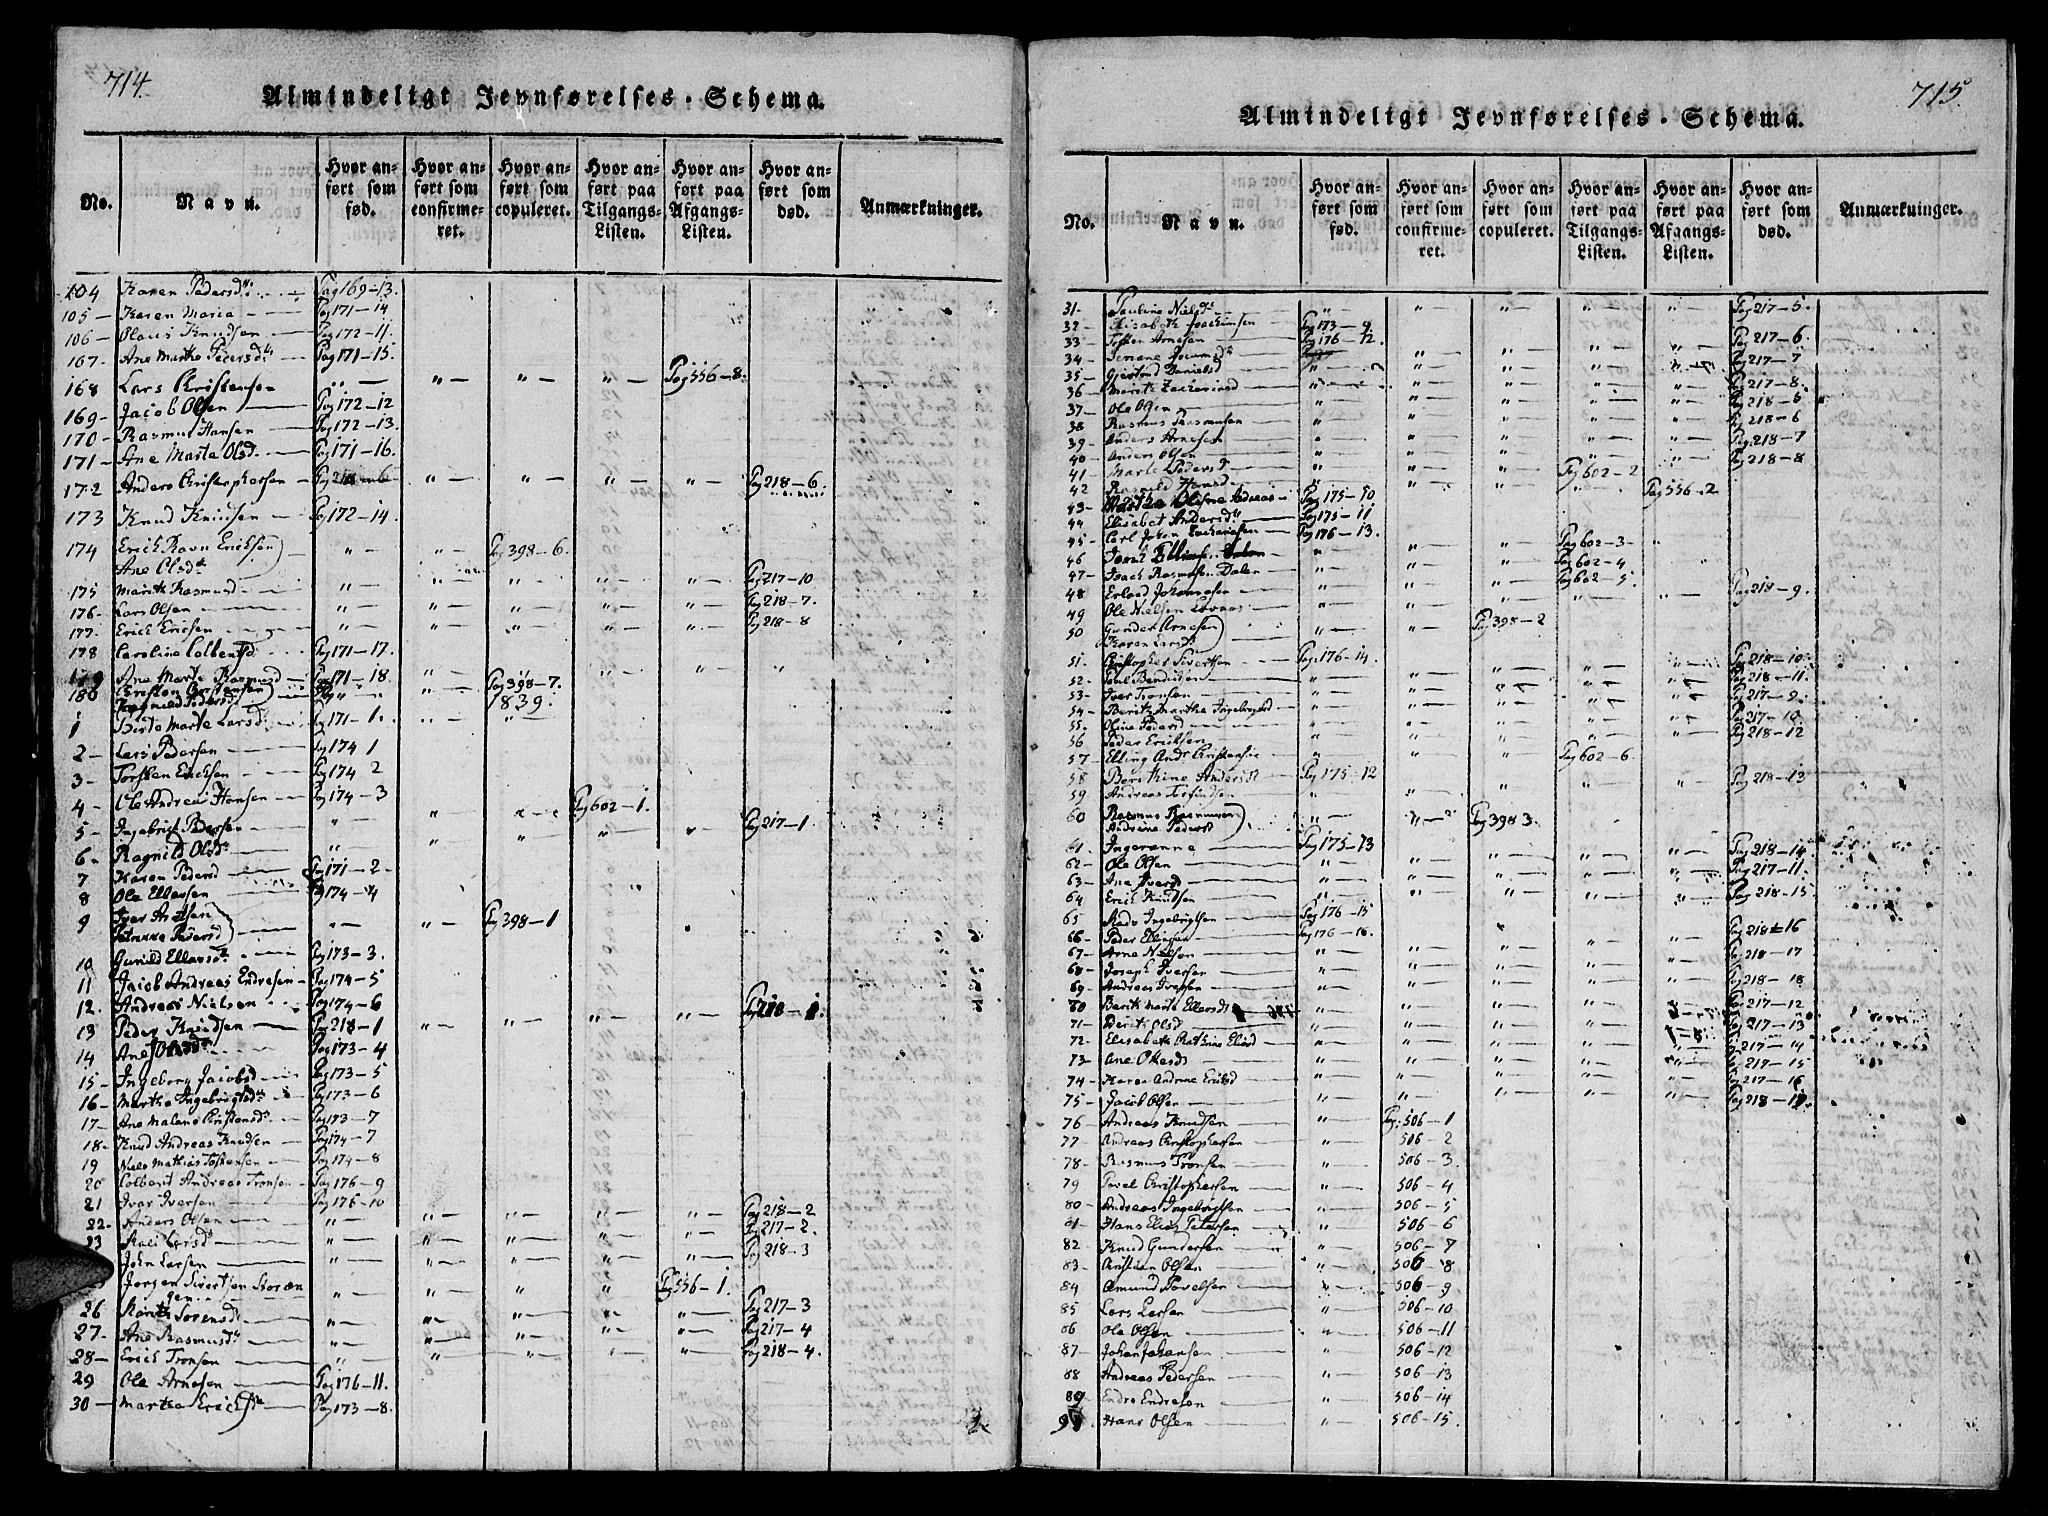 714.
Almindeligt Jevnførelses-Schema.
No.
Navn.
Hvor anført som fød.
Hvor anført som confirmeret.
Hvor anført som copuleret.
Hvor anført paa Tilgangs-Listen.
Hvor anført paa Afgangs-Listen.
Hvor anført som død.
Anmærkninger.
104 Karen Pedersd. Pag 169-13.
105 Karen Maria Pag 171-14
106 Olaus Knudsen Pag 172-11.
167. Ane Marthe Pedersd. Pag 171-15.
168 Lars Christensen " " " " Pag 556-8.
169 Jacob Olsen Pag 172-12
170 Rasmus Hansen Pag 172-13.
171 Ane Marte Olsd. Pag 171-16.
172 Anders Christophersen " " " " Pag 218-6.
173 Knud Knudsen Pag 172-14.
174 Erich Ravn Ericksen " " Pag 398-6.
Ane Olsd.
175 Marith Rasmusd. " " " " " Pag 217-10
176 Lars Olsen " " " " " Pag 218-7.
177. Erich Ericsen " " " " " Pag 218-8
178 Caroline Colbentsd. Pag 171-17.
179 Ane Marte Rasmusd. Pag 171-18.
180 Christen Christensen " " Pag 398-7.
Pedersd. 1839.
1 Birte Marte Larsd. Pag 171-1.
2 Lars Pedersen Pag 174 1
3 Torsten Ericksen Pag 174 2
4 Ole Andreas Hansen Pag 174-3
5 Ingebrigt Pedersen " " " Pag 602-1.
6 Ragnild Olsd. " " " " " Pag 217-1.
7 Karen Pedersd Pag 171-2
8 Ole Ellersen Pag 174-4
9 Iver Pag 398-1
Pedersd
10 Gunild Ellersd. Pag 173-3.
11 Jacob Andreas Endresen Pag 174-5
12. Andreas Nielsen Pag 174-6
13 Peder Knudsen Pag 218-1 " " " " Pag 218-1.
14 Ane Olsd. Pag 173-4
15 Ingeborg Jacobsd. Pag 173-5
16 Marthe Ingebrigtsd. Pag 173-6
17 Ane Malene Christensd. Pag 173-7
18 Knud Andreas Knudsen Pag 174-7
19 Niels Mathias Torstensen Pag 174-8
20 Colbent Andreas Tronsen Pag 176-9
21 Iver Iversen Pag 176-10
22. Anders Olsen " " " " " Pag 218-2
23 Larsd " " " " " Pag 217-2.
John Larsen " " " " " Pag 218-3
Jørgen Sivertsen Storæn " " " " Pag 556-1.
gen
26 Marithe Sorensd. " " " " " Pag 217-3
27 Ane Rasmusd. " " " " " Pag 217-4
28 Erich Tronsen " " " " " Pag 218-4.
29 Ole Arnesen Pag 176-11.
30 Marthe Erichsd. Pag 173-8.
715.
Almindeligt Jevnførelses-Schema.
No.
Navn.
Hvor anført som fød.
Hvor anført som confirmeret.
Hvor anført som copuleret.
Hvor anført paa Tilgangs-Listen.
Hvor anført paa Afgangs-Listen.
Hvor anført som død.
Anmærkninger.
31 Pauline Nielsd. " " " " " Pag 217-5.
32 Elisabeth Joachimsen Pag 173-9.
33 Torsten Arnesen Pag 176-12.
34 " " " " Pag 217-6.
35 Gjertrud Danielsd " " " " " Pag 217-7
36 Marith Zachariasd " " " " " Pag 217-8.
37 Ole Olsen " " " " " Pag 218-5
38 Rasmus Rasmussen " " " " " Pag 218-6
39 Anders Arnesen " " " " " Pag 218-7
40 Anders Olsen " " " " " Pag 218-8
41 Marte Pedersd. " " " Pag 602-2
42 " " " " Pag 556-2
43 Marthe Oline Pag 175-10
44 Elisabet Andersd. Pag 175-11
45 Carl Johan Zachariasen Pag 176-13.
46 " " " Pag 602-3
47 Rasmusen Dalen " " " Pag 602-4
48 Erland Johannesen " " " Pag 602-5
49 Ole Nielsen " " " " " Pag 218-9.
50 Gunder Arnesen " " Pag 398-2
Karen Larsd.
51. Christopher Sivertsen Pag 176-14.
52 Bendixsen " " " " " Pag 218-10.
53 Iver Tronsen " " " " " Pag 218-11.
54 Berit Marthe Ingebrigtsd " " " " " Pag 217-9.
55. Oline " " " " " Pag 217-10.
56 Peder Ericksen " " " " " Pag 218-12
57 Elling Andr. Christensen " " " Pag 602-6.
58 Berthine Andersd. Pag 175-12
59 Andreas " " " " " Pag 218-13
60 Rasmus Rasmusen " " Pag 398 3.
Andrine Pedersd
61 Ingeranne Pag 175-13
62 Ole Olsen " " " " " Pag 218-14
63 Ane Iversd " " " " " Pag 217-11.
64 Erick Knudsen " " " " " Pag 218-15
65 Mads Ingebrigtsen Pag 176-15
66 Peder Ellingsen Pag 176-16.
67 Arne Nielsen " " " " " Pag 218-16
68 Joseph Iversen " " " " " Pag 218-17
69 Andreas Iversen " " " " " Pag 218-18
60 Berith Marte Ellersd " " " " Pag 217-12
71 Berit Olsd " " " " Pag 217-13
72 Elisabeth Cathrine Eliasd " " " " " Pag 217-14
73 Ane " " " " " Pag 217-15
74 Karen Andrine Ericksd " " " " " Pag 217-16
75 Jacob Olsen " " " " " Pag 218-19.
76 Andreas Knudsen " Pag: 506-1
77 Andreas Christophersen " 506-2
78 Rasmus Tronsen " 506-3
79 Povel Christophersen " 506-4
80 Andreas Ingebrigtsen " 506-5
81 Hans Elias Petersen " 506-6
82 Knud Gundersen " 506-7
83 Christian Olsen " 506 8
84 Amund Povelsen " 506-9
85 Lars Larsen " 506-10
86 Ole Olsen " 506-11
87 Johan Johansen " 506-12
88 Andreas Pedersen " 506-13
89 Endre Endresen " 506-14
90 Hans Olsen " 506-15.